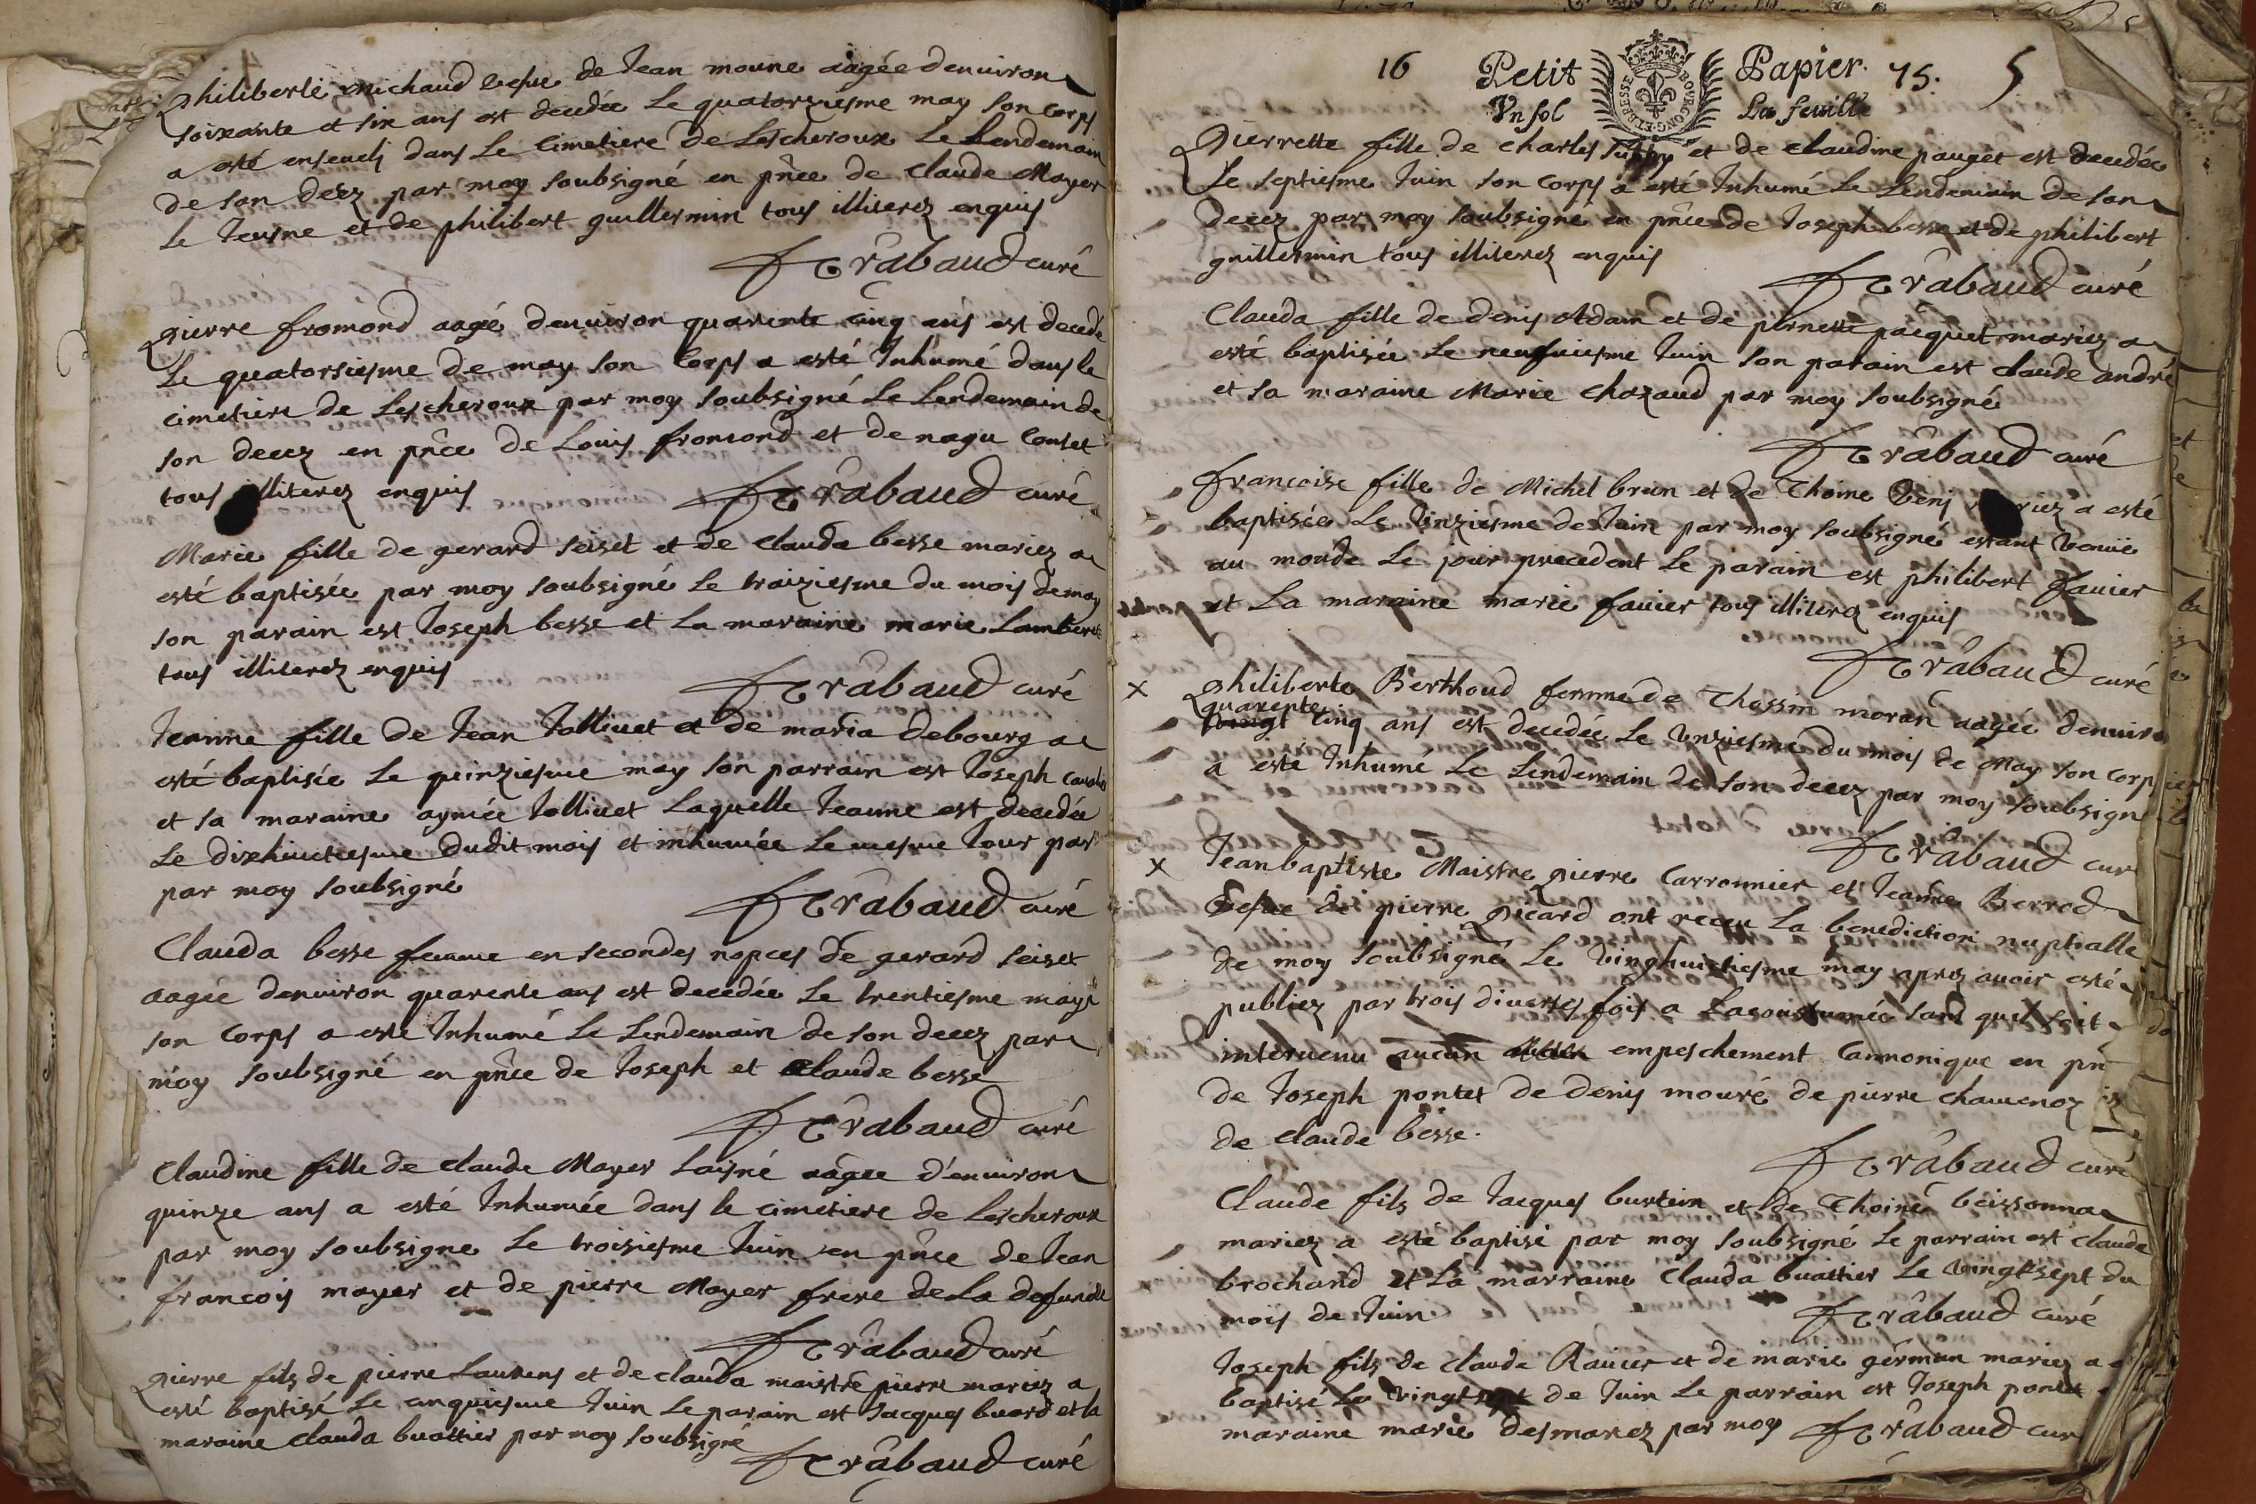 philiberte michaud vefue de Jean moune aagée denuiron
soixante et six ans est decedée Le quatorziesme may son corps
a esté enseueli dans Le Cimetiere de Lescheroux Le Lendemain
de son decez par moy soubsigné en pñce de Claude Mayer
le Jeusne et de philibert guillermin tous illiterez enquis
rabaud curé
pierre fromond aagé denuiron quarente cinq ans est decedé
Le quatorsiesme de may son Corps a esté Inhumé dans le
cimetiere de Lescheroux par moy soubsigné Le Lendemain de
son decez en pñce de Louis fromond et de nagu Contet
tous illiterez enquis rabaud curé
Marie fille de gerard seiset et de Clauda besse mariez a
esté baptisée par moy soubsigné Le traiziesme du mois de may
son parain est Joseph besse et La maraine marie Lambert
tous illiterez enquis
rabaud curé
Jeanne fille de Jean Jolliuet et de maria debourg a
esté baptisée Le quinziesme may son parrain est Joseph
et sa maraine aymée Jolliuet Laquelle Jeanne est decedée
Le dixhuictiesme dudit mois et inhumée Le mesme Jour par
par moy soubsigné
rabaud curé
Clauda besse femme en secondes nopces de gerard seiset
aagée denuiron quarente ans est decedée Le trentiesme may
son Corps a esté Inhumé Le Lendemain de son decez par
moy soubsigné en pñce de Joseph et Claude besse
rabaud curé
Claudine fille de Claude Mayer Laisné aagée d'enuiron
quinze ans a esté Inhumée dans le cimetiere de Lescheroux
par moy soubsigne Le troisiesme Juin en pñce de Jean
francois mayer et de pierre Mayer frere de La defunte
rabaud curé
pierre fils de pierre Laurens et de Clauda maistre pierre mariez a
esté baptisé Le cinquiesme Juin Le parain est Jacques buard et la
maraine Clauda buattier par moy soubsigné
rabaud curé
16 Petit Papier 75. 5
Vn sol La feuille
BOURGONG·ET·BRESSE
pierrette fille de Charles et de Claudine pauget est decedée
Le septiesme Juin son Corps a esté Inhumé Le Lendemain de son
decez par moy soubsigné en pñce de Joseph besse et de philibert
guillermin tous illiterez enquis
rabaud curé
Clauda fille de denis Adam et de pernette pacquet mariez a
esté baptisée Le neufuiesme Juin son parain est Claude andré
et sa maraine Marie Chazaud par moy soubsigné
rabaud curé
francoise fille de Michel brun et de Thoine a esté
baptisée Le Vnziesme de Juin par moy soubsigné estant Venüe
au monde Le jour precedent Le parain est philibert fauier
et La maraine marie fauier tous illiterez enquis
rabaud curé
x philiberte Berthoud femme de Thossin moran aagée denuiron
quarente
vingt Cinq ans est decedée Le Vnziesme du mois de May son corps
a esté Inhumé Le Lendemain de son decez par moy soubsigné
rabaud cur
x Jean baptiste Maistre pierre Carronnier et Jeanne Berrod
Vefue de pierre picard ont receu La benediction nuptialle
de moy soubsigné Le Vinghuictiesme may apres auoir esté
publiez par trois diuerses fois a Lacoustumée sans quil soit
interuenu aucun empeschement Cannonique en pñ
de Joseph pontet de denis mouré de pierre Chamenoz
de Claude besse.
rabaud curé
Claude fils de Jacques burtin et de Thoine boissonna
mariez a esté baptisé par moy soubsigné Le parrain est Claude
brochand et La marraine Clauda buattier Le Vingt sept du
mois de Juin
rabaud curé
Joseph fils de Claude Rauier et de marie german mariez a
baptisé Le Vingt de Juin Le parrain est Joseph pontet
maraine marie desmarez par moy rabaud cur